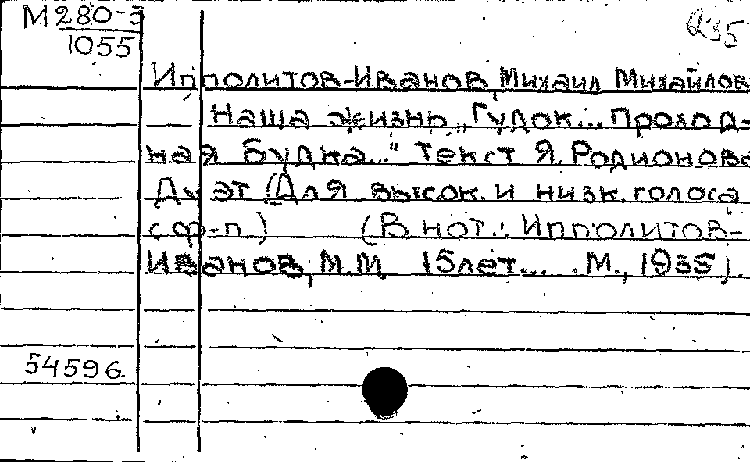 М 280-3
1055
Q35
Ипполитов-Иванов, Михаил Михайлов
Наша жизнь „Гудок... проход-
ная будка..." Текст Я. Родионова
Дуэт (Для высок. и низк. голоса
с ф-п) (В нот.: Ипполитов-
Иванов, М.М. 15 лет... М., 1935).
54596